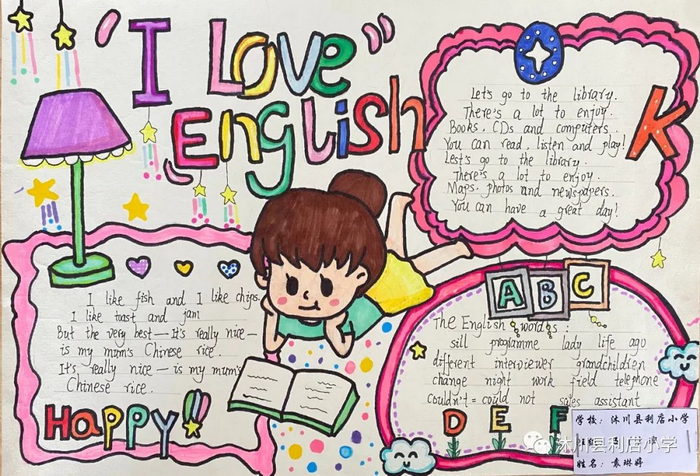 "I Love"
English
Let's go to the library.
There's a lot to enjoy.
Books, CDs and computers
You can read, listen and play!
Lest's go to the library.
There's a lot to enjoy.
Maps. photos and newspapers.
You can have a great day!
K
I like fish and I like chips.
I like toast and jam
But the very best—It's really nice—
is my mum's Chinese rice.
It's really nice—is my mum's
Chinese rice.
HAPPY!!
ABC
The English words:
sill programme lady life ago
different interviewer grandchildren
change night work field telephone
couldn't = could not sales assistant
DEF
学校: 沐川县利店小学
姓名: 袁琳婷
沐川县利店小学